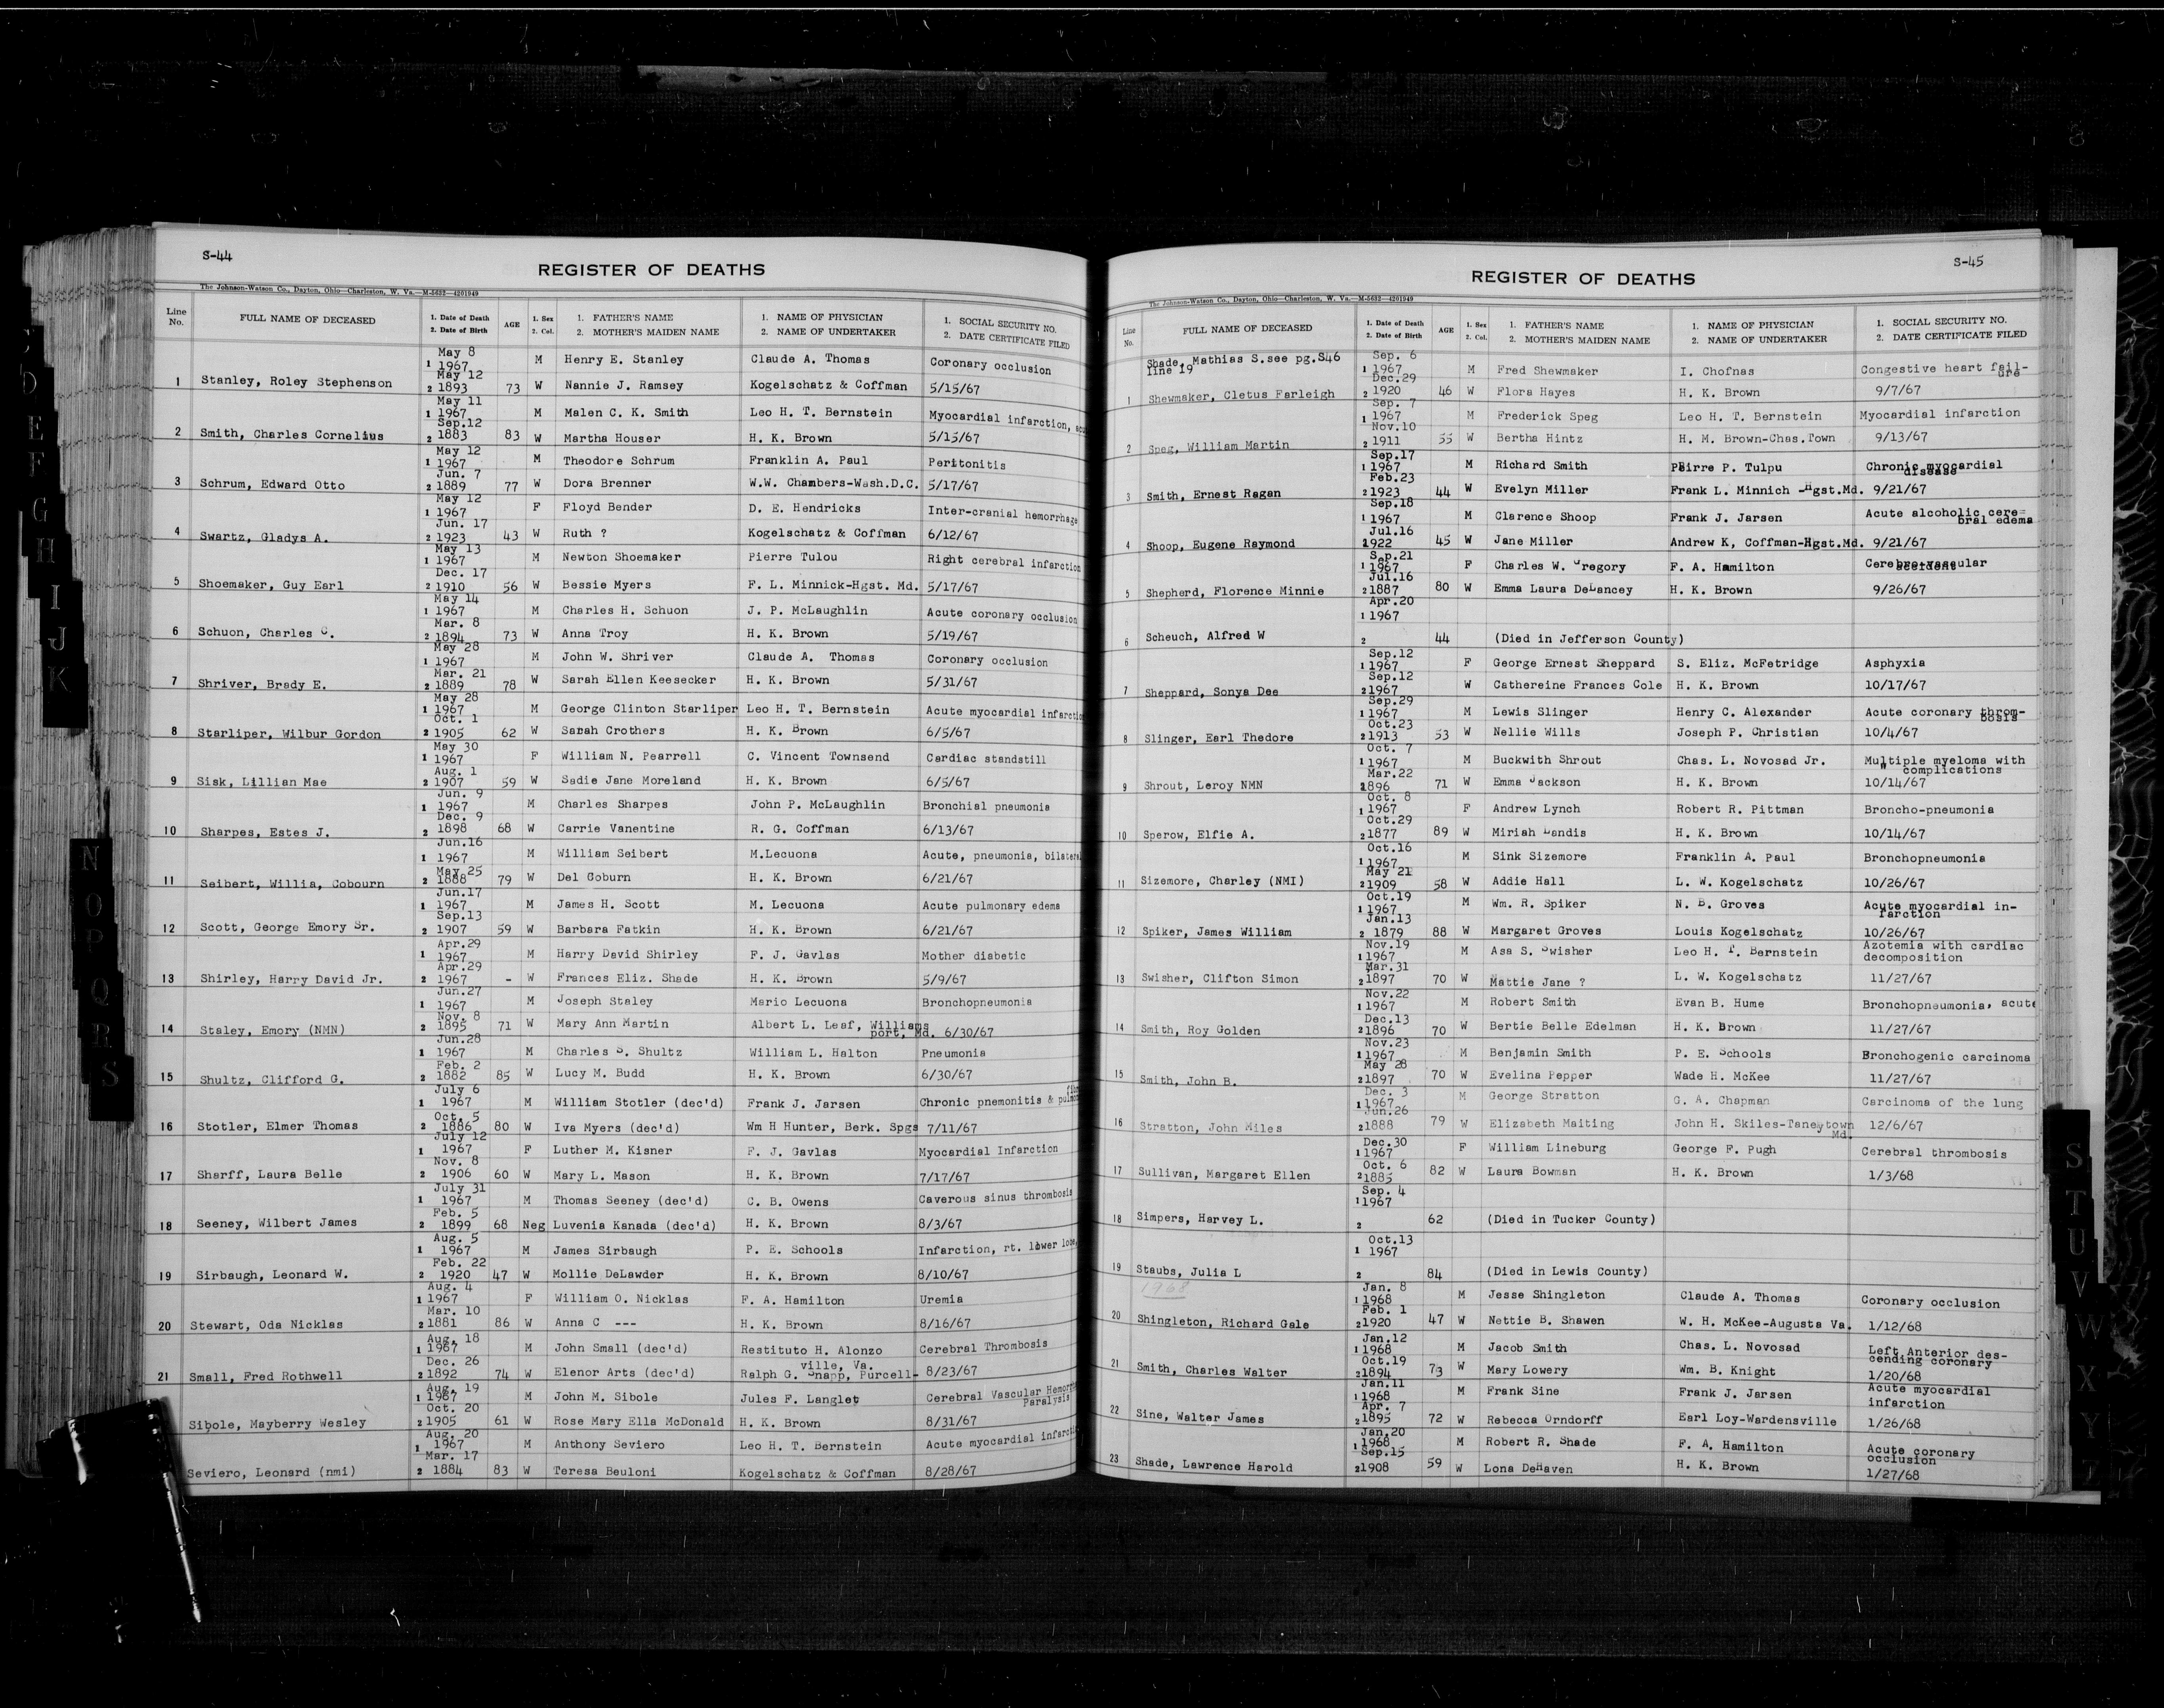 S-44
REGISTER OF DEATHS
The Johnson-Watson Co., Dayton, Ohio—Charleston, W. Va.—M-5632—4201949
Line No. FULL NAME OF DECEASED 1. Date of Death 2. Date of Birth AGE 1. Sex 2. Col. 1. FATHER'S NAME 2. MOTHER'S MAIDEN NAME 1. NAME OF PHYSICIAN 2. NAME OF UNDERTAKER 1. SOCIAL SECURITY NO. 2. DATE CERTIFICATE FILED
May 8
1 1967 M Henry E. Stanley Claude A. Thomas Coronary occlusion
May 12
1 Stanley, Roley Stephenson 2 1893 73 W Nannie J. Ramsey Kogelschatz & Coffman 5/15/67
May 11
1 1967 M Malen C. K. Smith Leo H. T. Bernstein Myocardial infarction, acu
Sep.12
2 Smith, Charles Cornelius 2 1883 83 W Martha Houser H. K. Brown 5/15/67
May 12
1 1967 M Theodore Schrum Franklin A. Paul Peritonitis
Jun. 7
3 Schrum, Edward Otto 2 1889 77 W Dora Brenner W.W. Chambers-Wash.D.C. 5/17/67
May 12
1 1967 F Floyd Bender D. E. Hendricks Inter-cranial hemorrhage
Jun. 17
4 Swartz, Gladys A. 2 1923 43 W Ruth ? Kogelschatz & Coffman 6/12/67
May 13
1 1967 M Newton Shoemaker Pierre Tulou Right cerebral infarction
Dec. 17
5 Shoemaker, Guy Earl 2 1910 56 W Bessie Myers F. L. Minnick-Hgst. Md. 5/17/67
May 14
1 1967 M Charles H. Schuon J. P. McLaughlin Acute coronary occlusion
Mar. 8
6 Schuon, Charles C. 2 1894 73 W Anna Troy H. K. Brown 5/19/67
May 28
1 1967 M John W. Shriver Claude A. Thomas Coronary occlusion
Mar. 21
7 Shriver, Brady E. 2 1889 78 W Sarah Ellen Keesecker H. K. Brown 5/31/67
May 28
1 1967 M George Clinton Starliper Leo H. T. Bernstein Acute myocardial infarctio
Oct. 1
8 Starliper, Wilbur Gordon 2 1905 62 W Sarah Crothers H. K. Brown 6/5/67
May 30
1 1967 F William N. Pearrell C. Vincent Townsend Cardiac standstill
Aug. 1
9 Sisk, Lillian Mae 2 1907 59 W Sadie Jane Moreland H. K. Brown 6/5/67
Jun. 9
1 1967 M Charles Sharpes John P. McLaughlin Bronchial pneumonia
Dec. 9
10 Sharpes, Estes J. 2 1898 68 W Carrie Vanentine R. G. Coffman 6/13/67
Jun.16
1 1967 M William Seibert M.Lecuona Acute, pneumonia, bilateral
May 25
11 Seibert, Willia, Cobourn 2 1888 79 W Del Coburn H. K. Brown 6/21/67
Jun.17
1 1967 M James H. Scott M. Lecuona Acute pulmonary edema
Sep.13
12 Scott, George Emory Sr. 2 1907 59 W Barbara Fatkin H. K. Brown 6/21/67
Apr.29
1 1967 M Harry David Shirley F. J. Gavlas Mother diabetic
Apr.29
13 Shirley, Harry David Jr. 2 1967 - W Frances Eliz. Shade H. K. Brown 5/9/67
Jun.27
1 1967 M Joseph Staley Mario Lecuona Bronchopneumonia
Nov. 8
14 Staley, Emory (NMN) 2 1895 71 W Mary Ann Martin Albert L. Leaf, Williams
port, Md. 6/30/67
Jun.28
1 1967 M Charles S. Shultz William L. Halton Pneumonia
Feb. 2
15 Shultz, Clifford G. 2 1882 85 W Lucy M. Budd H. K. Brown 6/30/67
July 6
1 1967 M William Stotler (dec'd) Frank J. Jarsen Chronic pnemonitis & pulmon
Oct. 5
16 Stotler, Elmer Thomas 2 1886 80 W Iva Myers (dec'd) Wm H Hunter, Berk. Spgs 7/11/67
July 12
1 1967 F Luther M. Kisner F. J. Gavlas Myocardial Infarction
Nov. 8
17 Sharff, Laura Belle 2 1906 60 W Mary L. Mason H. K. Brown 7/17/67
July 31
1 1967 M Thomas Seeney (dec'd) C. B. Owens Caverous sinus thrombosis
Feb. 5
18 Seeney, Wilbert James 2 1899 68 Neg Luvenia Kanada (dec'd) H. K. Brown 8/3/67
Aug. 5
1 1967 M James Sirbaugh P. E. Schools Infarction, rt. lower lobe,
Feb. 22
19 Sirbaugh, Leonard W. 2 1920 47 W Mollie DeLawder H. K. Brown 8/10/67
Aug. 4
1 1967 F William O. Nicklas F. A. Hamilton Uremia
Mar. 10
20 Stewart, Oda Nicklas 2 1881 86 W Anna C --- H. K. Brown 8/16/67
Aug. 18
1 1967 M John Small (dec'd) Restituto H. Alonzo Cerebral Thrombosis
Dec. 26 ville, Va.
21 Small, Fred Rothwell 2 1892 74 W Elenor Arts (dec'd) Ralph G. Snapp, Purcell- 8/23/67
Aug. 19
1 1967 M John M. Sibole Jules F. Langlet Cerebral Vascular Hemorrh
Oct. 20 Paralysis
Sibole, Mayberry Wesley 2 1905 61 W Rose Mary Ella McDonald H. K. Brown 8/31/67
Aug. 20
1 1967 M Anthony Seviero Leo H. T. Bernstein Acute myocardial infarcti
Mar. 17
Seviero, Leonard (nmi) 2 1884 83 W Teresa Beuloni Kogelschatz & Coffman 8/28/67
S-45
REGISTER OF DEATHS
The Johnson-Watson Co., Dayton, Ohio—Charleston, W. Va.—M-5632—4201949
Line No. FULL NAME OF DECEASED 1. Date of Death 2. Date of Birth AGE 1. Sex 2. Col. 1. FATHER'S NAME 2. MOTHER'S MAIDEN NAME 1. NAME OF PHYSICIAN 2. NAME OF UNDERTAKER 1. SOCIAL SECURITY NO. 2. DATE CERTIFICATE FILED
Shade, Mathias S.see pg.S46 Sep. 6
line 19 1 1967 M Fred Shewmaker I. Chofnas Congestive heart fail-
Dec.29 ure
1 Shewmaker, Cletus Farleigh 2 1920 46 W Flora Hayes H. K. Brown 9/7/67
Sep. 7
1 1967 M Frederick Speg Leo H. T. Bernstein Myocardial infarction
Nov.10
2 Speg, William Martin 2 1911 55 W Bertha Hintz H. M. Brown-Chas.Town 9/13/67
Sep.17
1 1967 M Richard Smith Pierre P. Tulpu Chronic myocardial
Feb.23 disease
3 Smith, Ernest Ragan 2 1923 44 W Evelyn Miller Frank L. Minnich -Hgst.Md. 9/21/67
Sep.18
1 1967 M Clarence Shoop Frank J. Jarsen Acute alcoholic cere=
Jul.16 bral edema
4 Shoop, Eugene Raymond 1922 45 W Jane Miller Andrew K, Coffman-Hgst.Md. 9/21/67
Sep.21
1 1967 F Charles W. Gregory F. A. Hamilton Cerebro-vascular
Jul.16 accident
5 Shepherd, Florence Minnie 2 1887 80 W Emma Laura DeLancey H. K. Brown 9/26/67
Apr.20
1 1967
6 Scheuch, Alfred W 2 44 (Died in Jefferson County)
Sep.12
1 1967 F George Ernest Sheppard S. Eliz. McFetridge Asphyxia
Sep.12
7 Sheppard, Sonya Dee 2 1967 W Cathereine Frances Cole H. K. Brown 10/17/67
Sep.29
1 1967 M Lewis Slinger Henry C. Alexander Acute coronary throm-
Oct.23 bosis
8 Slinger, Earl Thedore 2 1913 53 W Nellie Wills Joseph P. Christian 10/4/67
Oct. 7
1 1967 M Buckwith Shrout Chas. L. Novosad Jr. Multiple myeloma with
Mar.22 complications
9 Shrout, Leroy NMN 1896 71 W Emma Jackson H. K. Brown 10/14/67
Oct. 8
1 1967 F Andrew Lynch Robert R. Pittman Broncho-pneumonia
Oct.29
10 Sperow, Elfie A. 2 1877 89 W Miriah Landis H. K. Brown 10/14/67
Oct.16
1 1967 M Sink Sizemore Franklin A. Paul Bronchopneumonia
May 21
11 Sizemore, Charley (NMI) 2 1909 58 W Addie Hall L. W. Kogelschatz 10/26/67
Oct.19
1 1967 M Wm. R. Spiker N. B. Groves Acute myocardial in-
Jan.13 farction
12 Spiker, James William 2 1879 88 W Margaret Groves Louis Kogelschatz 10/26/67
Nov.19 Azotemia with cardiac
1 1967 M Asa S. Swisher Leo H. T. Bernstein decomposition
Mar.31
13 Swisher, Clifton Simon 2 1897 70 W Mattie Jane ? L. W. Kogelschatz 11/27/67
Nov.22
1 1967 M Robert Smith Evan B. Hume Bronchopneumonia, acute
Dec.13
14 Smith, Roy Golden 2 1896 70 W Bertie Belle Edelman H. K. Brown 11/27/67
Nov.23
1 1967 M Benjamin Smith P. E. Schools Bronchogenic carcinoma
May 28
15 Smith, John B. 2 1897 70 W Evelina Pepper Wade H. McKee 11/27/67
Dec. 3
1 1967 M George Stratton G. A. Chapman Carcinoma of the lung
Jun.26
16 Stratton, John Miles 2 1888 79 W Elizabeth Maiting John H. Skiles-Taneytown 12/6/67
Md.
Dec.30
1 1967 F William Lineburg George F. Pugh Cerebral thrombosis
Oct. 6
17 Sullivan, Margaret Ellen 2 1885 82 W Laura Bowman H. K. Brown 1/3/68
Sep. 4
1 1967
18 Simpers, Harvey L. 2 62 (Died in Tucker County)
Oct.13
1 1967
19 Staubs, Julia L 2 84 (Died in Lewis County)
1968
Jan. 8
1 1968 M Jesse Shingleton Claude A. Thomas Coronary occlusion
Feb. 1
20 Shingleton, Richard Gale 2 1920 47 W Nettie B. Shawen W. H. McKee-Augusta Va. 1/12/68
Jan.12
1 1968 M Jacob Smith Chas. L. Novosad Left Anterior des-
Oct.19 cending coronary
21 Smith, Charles Walter 2 1894 73 W Mary Lowery Wm. B. Knight 1/20/68
Jan.11 Acute myocardial
1 1968 M Frank Sine Frank J. Jarsen infarction
Apr. 7
22 Sine, Walter James 2 1895 72 W Rebecca Orndorff Earl Loy-Wardensville 1/26/68
Jan.20
1 1968 M Robert R. Shade F. A. Hamilton Acute coronary
Sep.15 occlusion
23 Shade, Lawrence Harold 2 1908 59 W Lona DeHaven H. K. Brown 1/27/68
D
E
F
G
H
I
J
K
N
O
P
Q
R
S
S
T
U
V
W
X
Y
Z